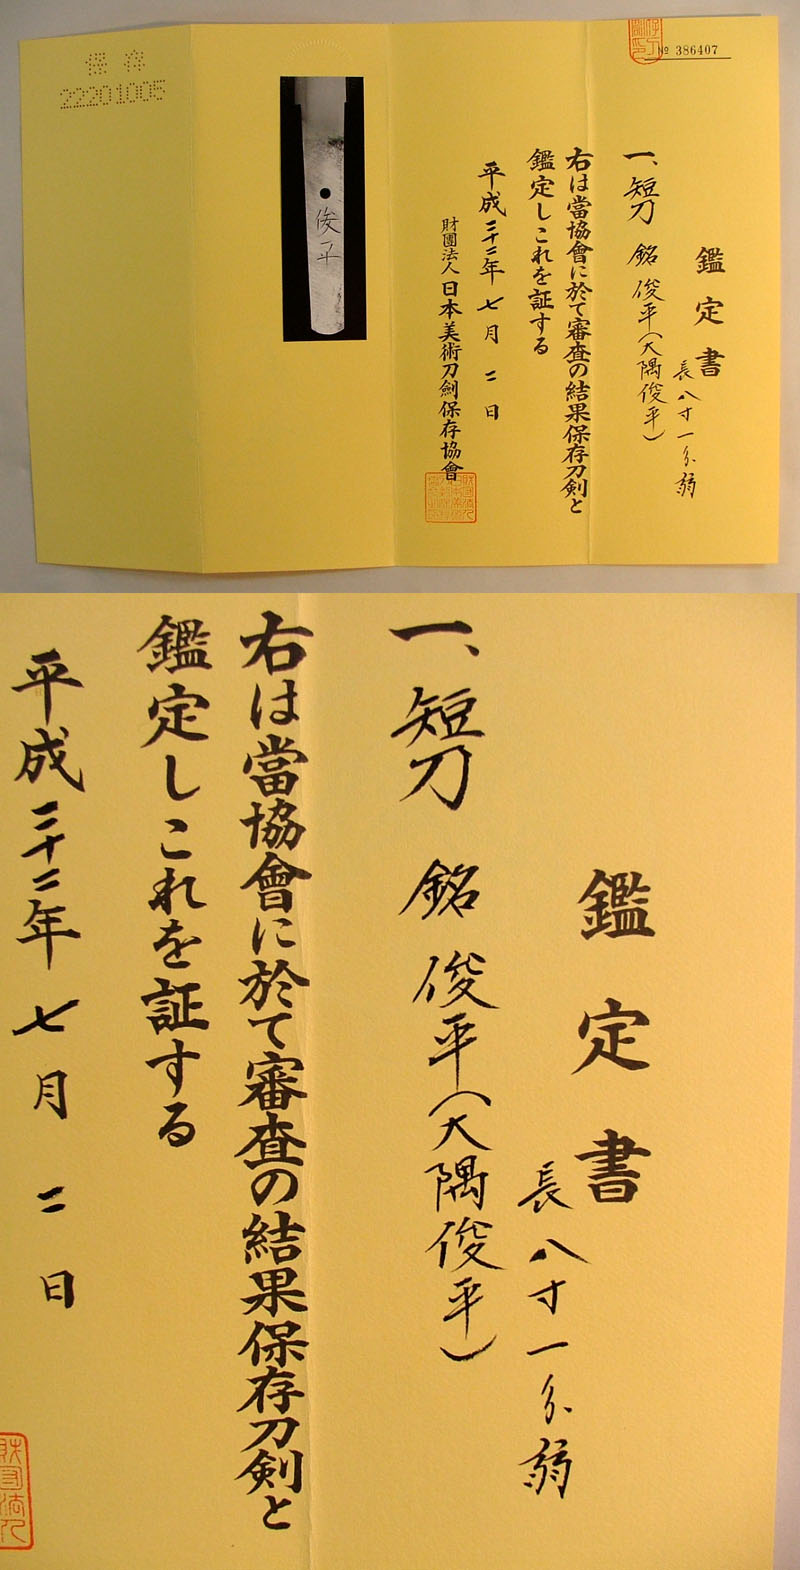 № 386407
鑑定書
長八寸一分弱
一、短刀 銘 俊平(大隅俊平)
右は當協會に於て審査の結果保存刀剣と
鑑定しこれを証する
平成二十二年七月二日
財團法人日本美術刀劍保存協會
俊平
保存
22201005
鑑定書
長八寸一分弱
一、短刀 銘 俊平(大隅俊平)
右は當協會に於て審査の結果保存刀剣と
鑑定しこれを証する
平成二十二年七月二日